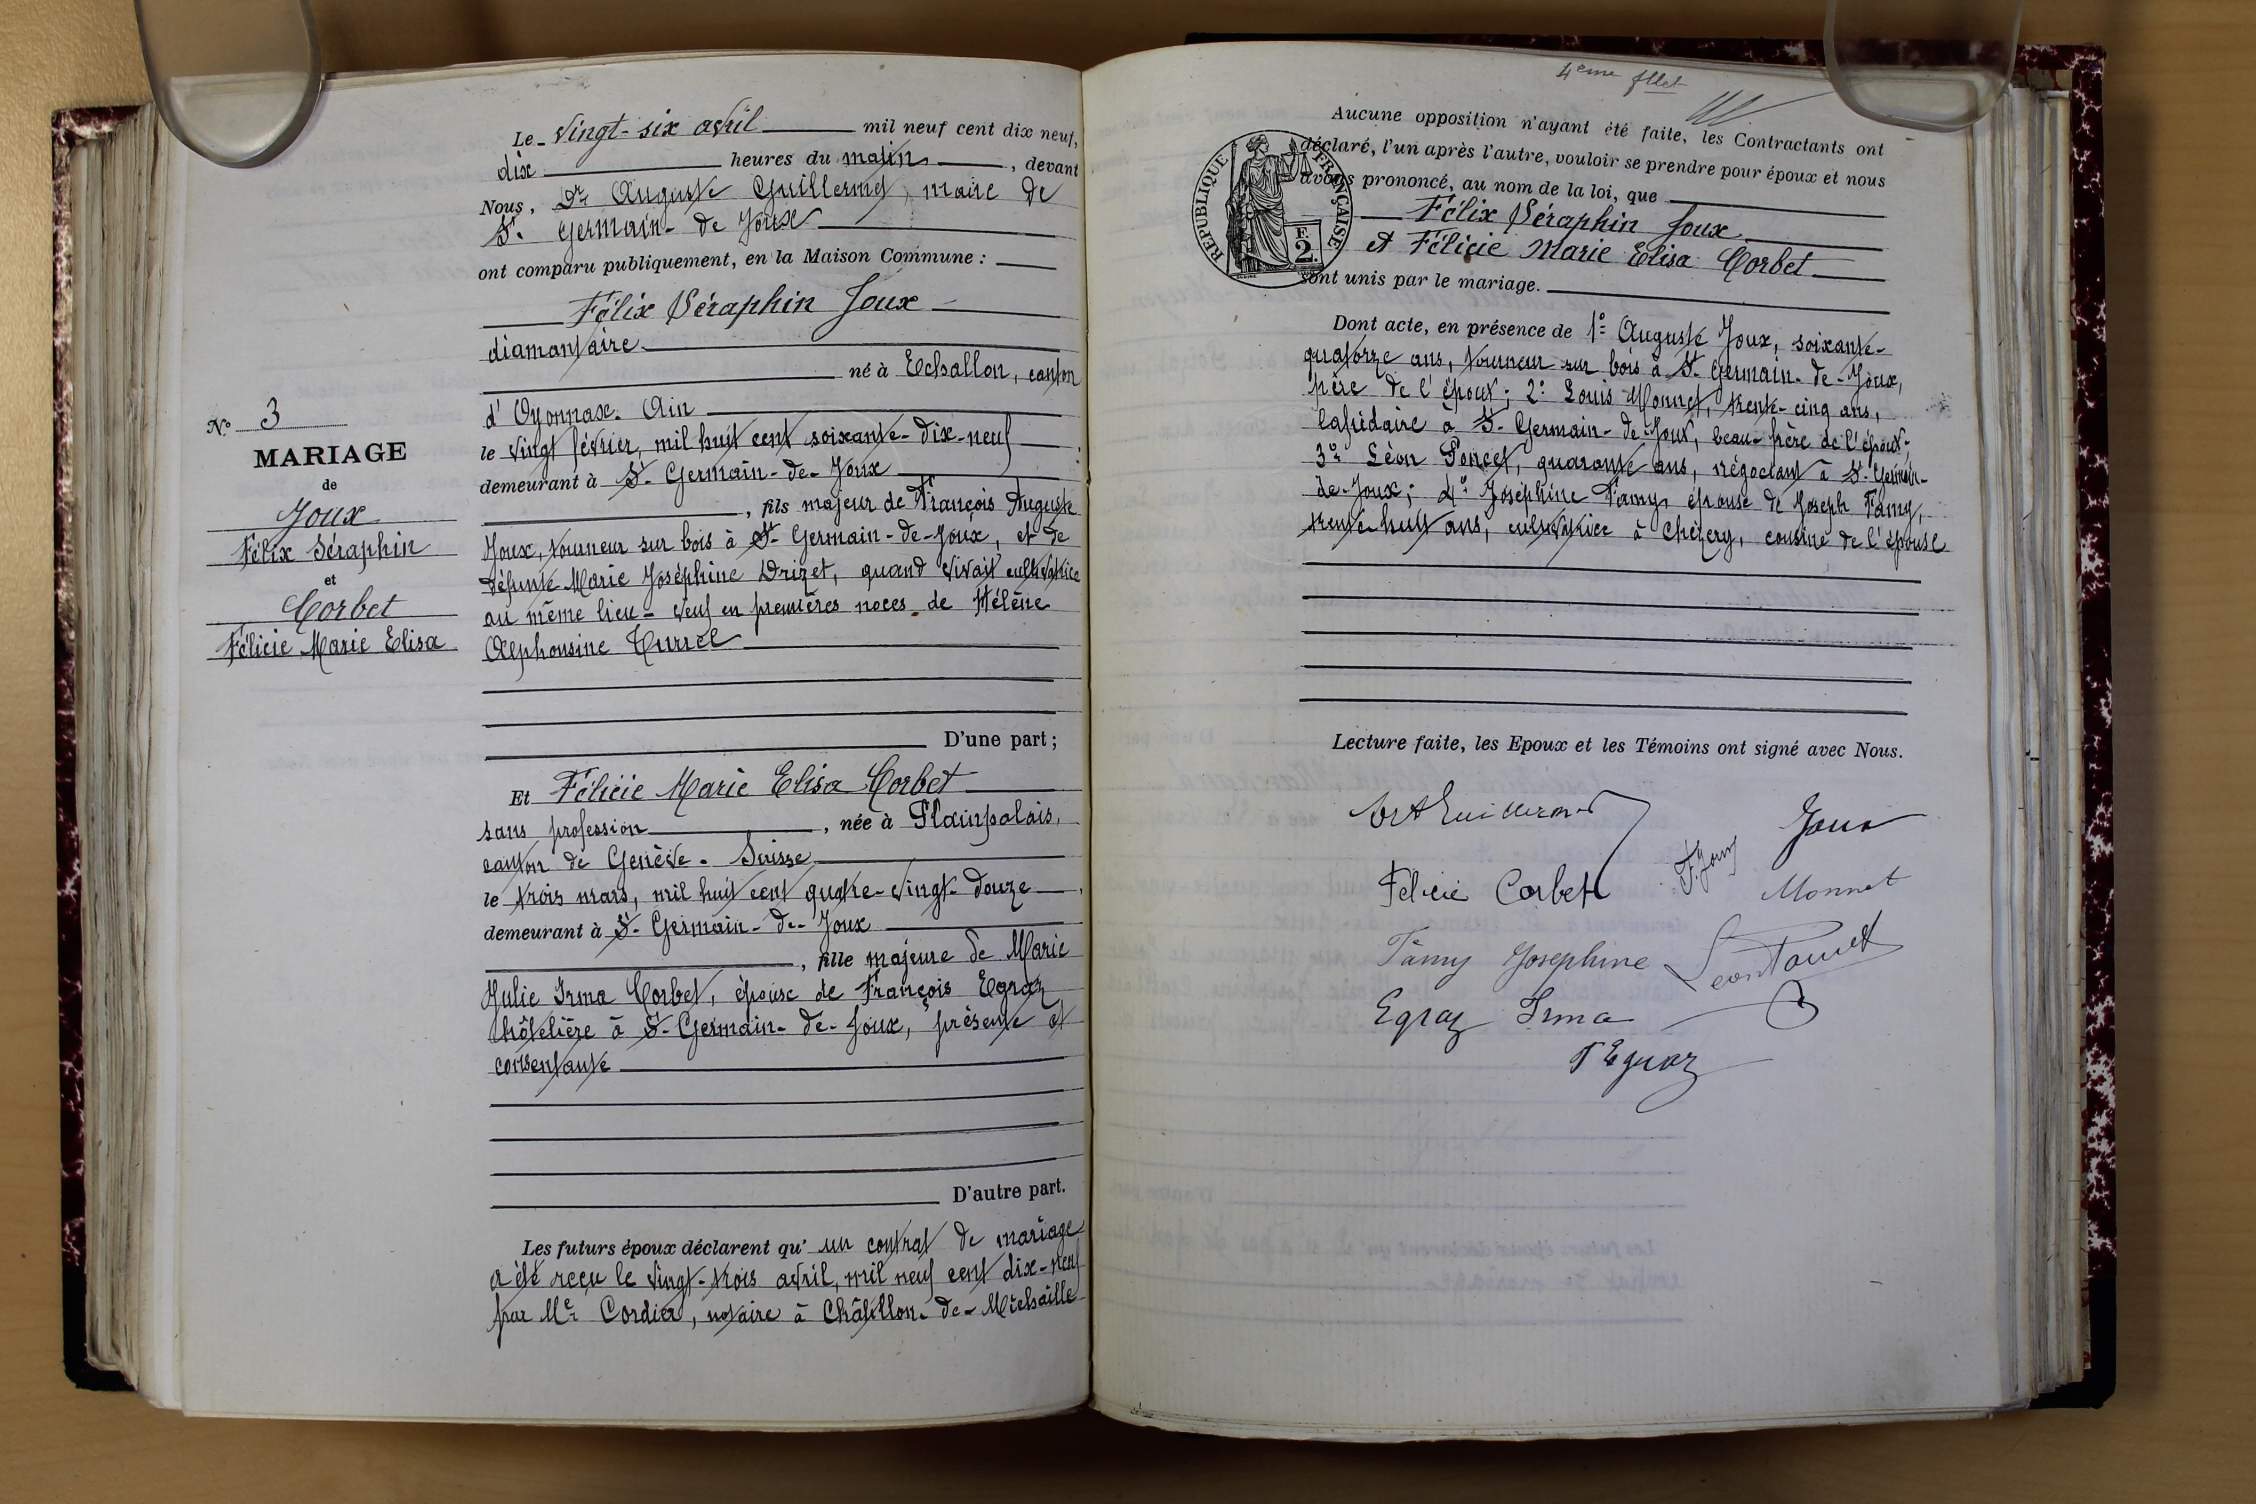 N.° 3
MARIAGE
de
Joux
Félix Séraphin
et
Corbet
Félicie Marie Elisa
Le Vingt-six avril mil neuf cent dix neuf,
dix heures du matin, devant
Nous, Dr Auguste Guillermet, maire de
St. Germain-de Joux
ont comparu publiquement, en la Maison Commune :
Félix Séraphin Joux
diamantaire
né à Echallon, canton
d'Oyonnax. Ain
le vingt février, mil huit cent soixante-dix-neuf
demeurant à St-Germain-de-Joux
, fils majeur de François Auguste
Joux, tourneur sur bois à St-Germain-de-Joux, et de
défunte Marie Joséphine Drizet, quand vivait cultivatrice
au même lieu - veuf en premières noces de Hélène
Alphonsine Turrel
D'une part ;
Et Félicie Marie Elisa Corbet
sans profession, née à Plainpalais,
canton de Genève. Suisse
le trois mars, mil huit cent quatre-vingt-douze
demeurant à St-Germain-de-Joux
, fille majeure de Marie
Julie Irma Corbet, épouse de François Egraz
hôtelière à St-Germain-de-Joux, présente et
consentante
D'autre part.
Les futurs époux déclarent qu' un contrat de mariage
a été reçu le vingt-trois avril, mil neuf cent dix-neuf
par Me Cordier, notaire à Châtillon-de-Michaille
4eme fllet
REPUBLIQUE FRANÇAISE
F.
2.
Aucune opposition n'ayant été faite, les Contractants ont
déclaré, l'un après l'autre, vouloir se prendre pour époux et nous
avons prononcé, au nom de la loi, que
Félix Séraphin Joux
et Félicie Marie Elisa Corbet
sont unis par le mariage.
Dont acte, en présence de 1° Auguste Joux, soixante-
quatorze ans, tourneur sur bois à St-Germain-de-Joux,
père de l'époux; 2° Louis Monnet, trente-cinq ans,
lapidaire à St-Germain-de-Joux, beau-frère de l'époux;
3° Léon Poncet, quarante ans, négociant à St-Germain-
de-Joux; 4° Joséphine Famy, épouse de Joseph Famy,
trente-huit ans, cultivatrice à Chézery, cousine de l'épouse
Lecture faite, les Epoux et les Témoins ont signé avec Nous.
Joux
F. Joux
Félicie Corbet
Monnet
Famy Josephine
Leon Poncet
Egraz Irma
F Egraz